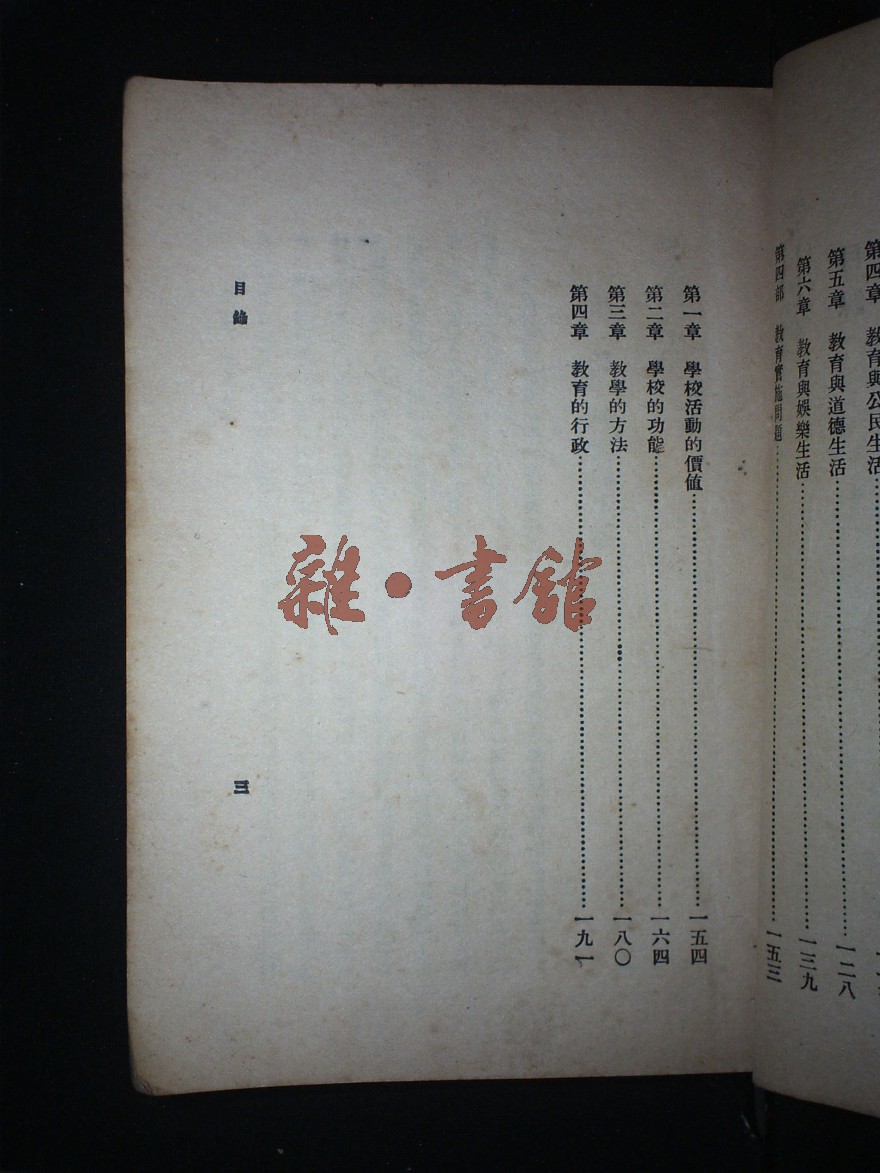 第四章　教育與公民生活
第五章　教育與道德生活………一二八
第六章　教育與娛樂生活………一三九
第四部　教育實施問題………一五三
第一章　學校活動的價值………一五四
第二章　學校的功能………一六四
第三章　教學的方法………一八〇
第四章　教育的行政………一九一
目錄
三
雜・書館